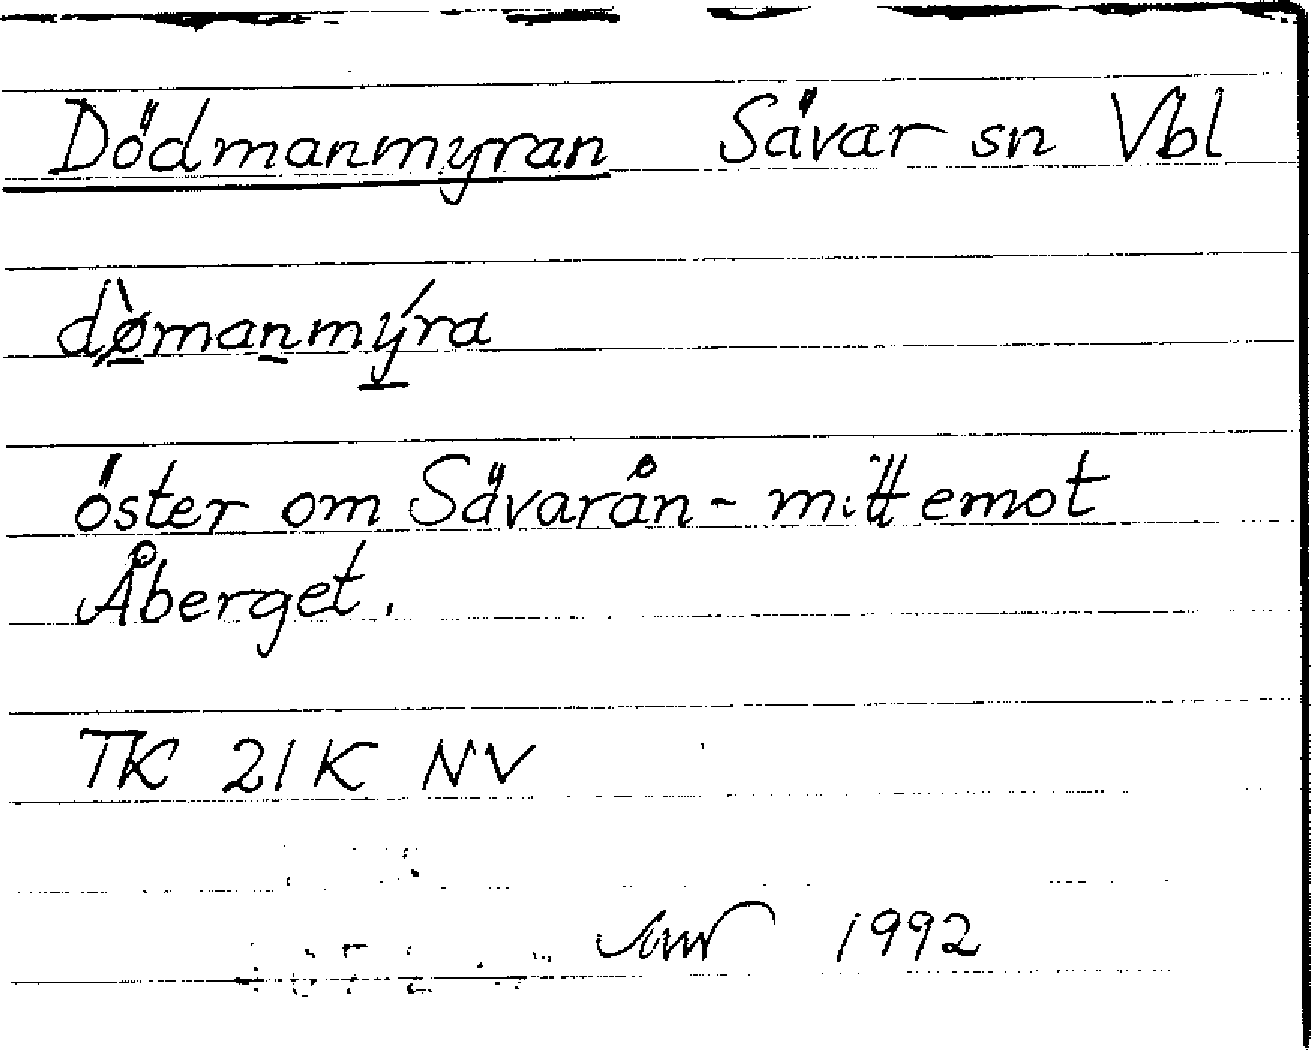 Dödmanmyran Sävar sn Vbl
dø̀manmýra
öster om Sävarån - mittemot
Åberget.
TK 21K NV
1992